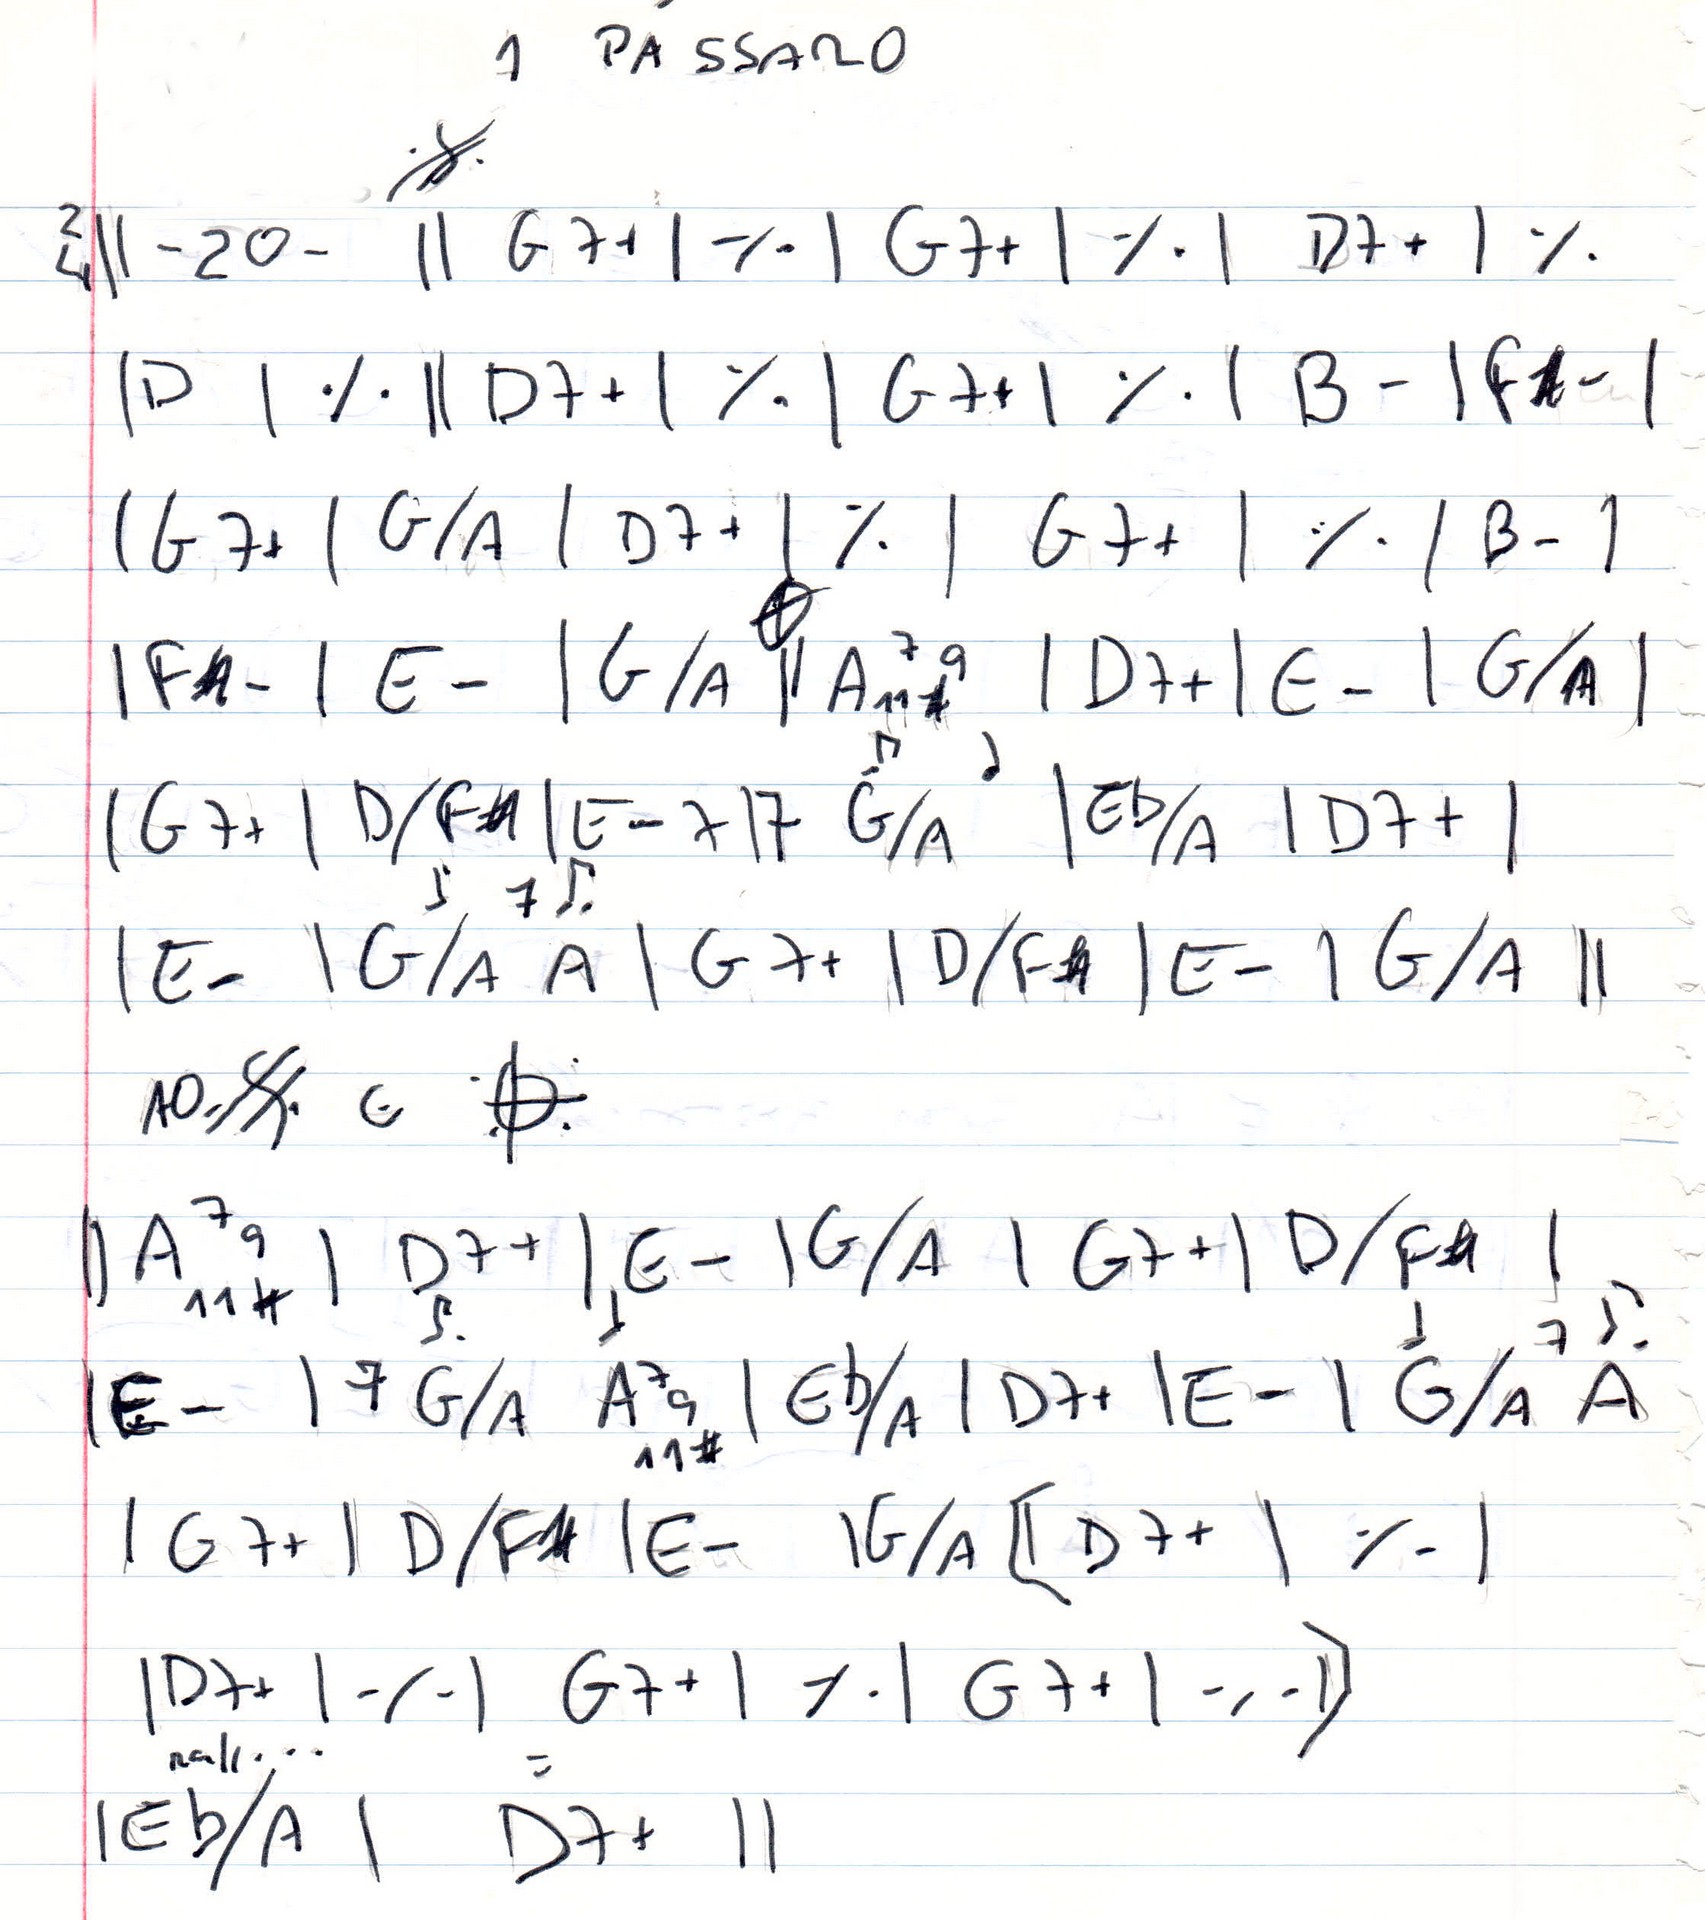 1 PÁSSARO
𝄋
2/4 || -20- || G7+ | ٪ | G7+ | ٪ | D7+ | ٪
| D | ٪ || D7+ | ٪ | G7+ | ٪ | B- | F#- |
| G7+ | G/A | D7+ | ٪ | G7+ | ٪ | B- |
| F#- | E- | G/A 𝄌 || A 7 9 11# | D7+ | E- | G/A |
| G7+ | D/F# | E-7 | 7 G/A | Eb/A | D7+ |
| E- | G/A A | G7+ | D/F# | E- | G/A ||
AO 𝄋 E 𝄌
|| A 7 9 11# | D7+ | E- | G/A | G7+ | D/F# |
| E- | 7 G/A A 7 9 11# | Eb/A | D7+ | E- | G/A A
| G7+ | D/F# | E- | G/A [| D7+ | ٪ |
| D7+ | ٪ | G7+ | ٪ | G7+ | ٪ |]
rall...
| Eb/A | D7+ ||